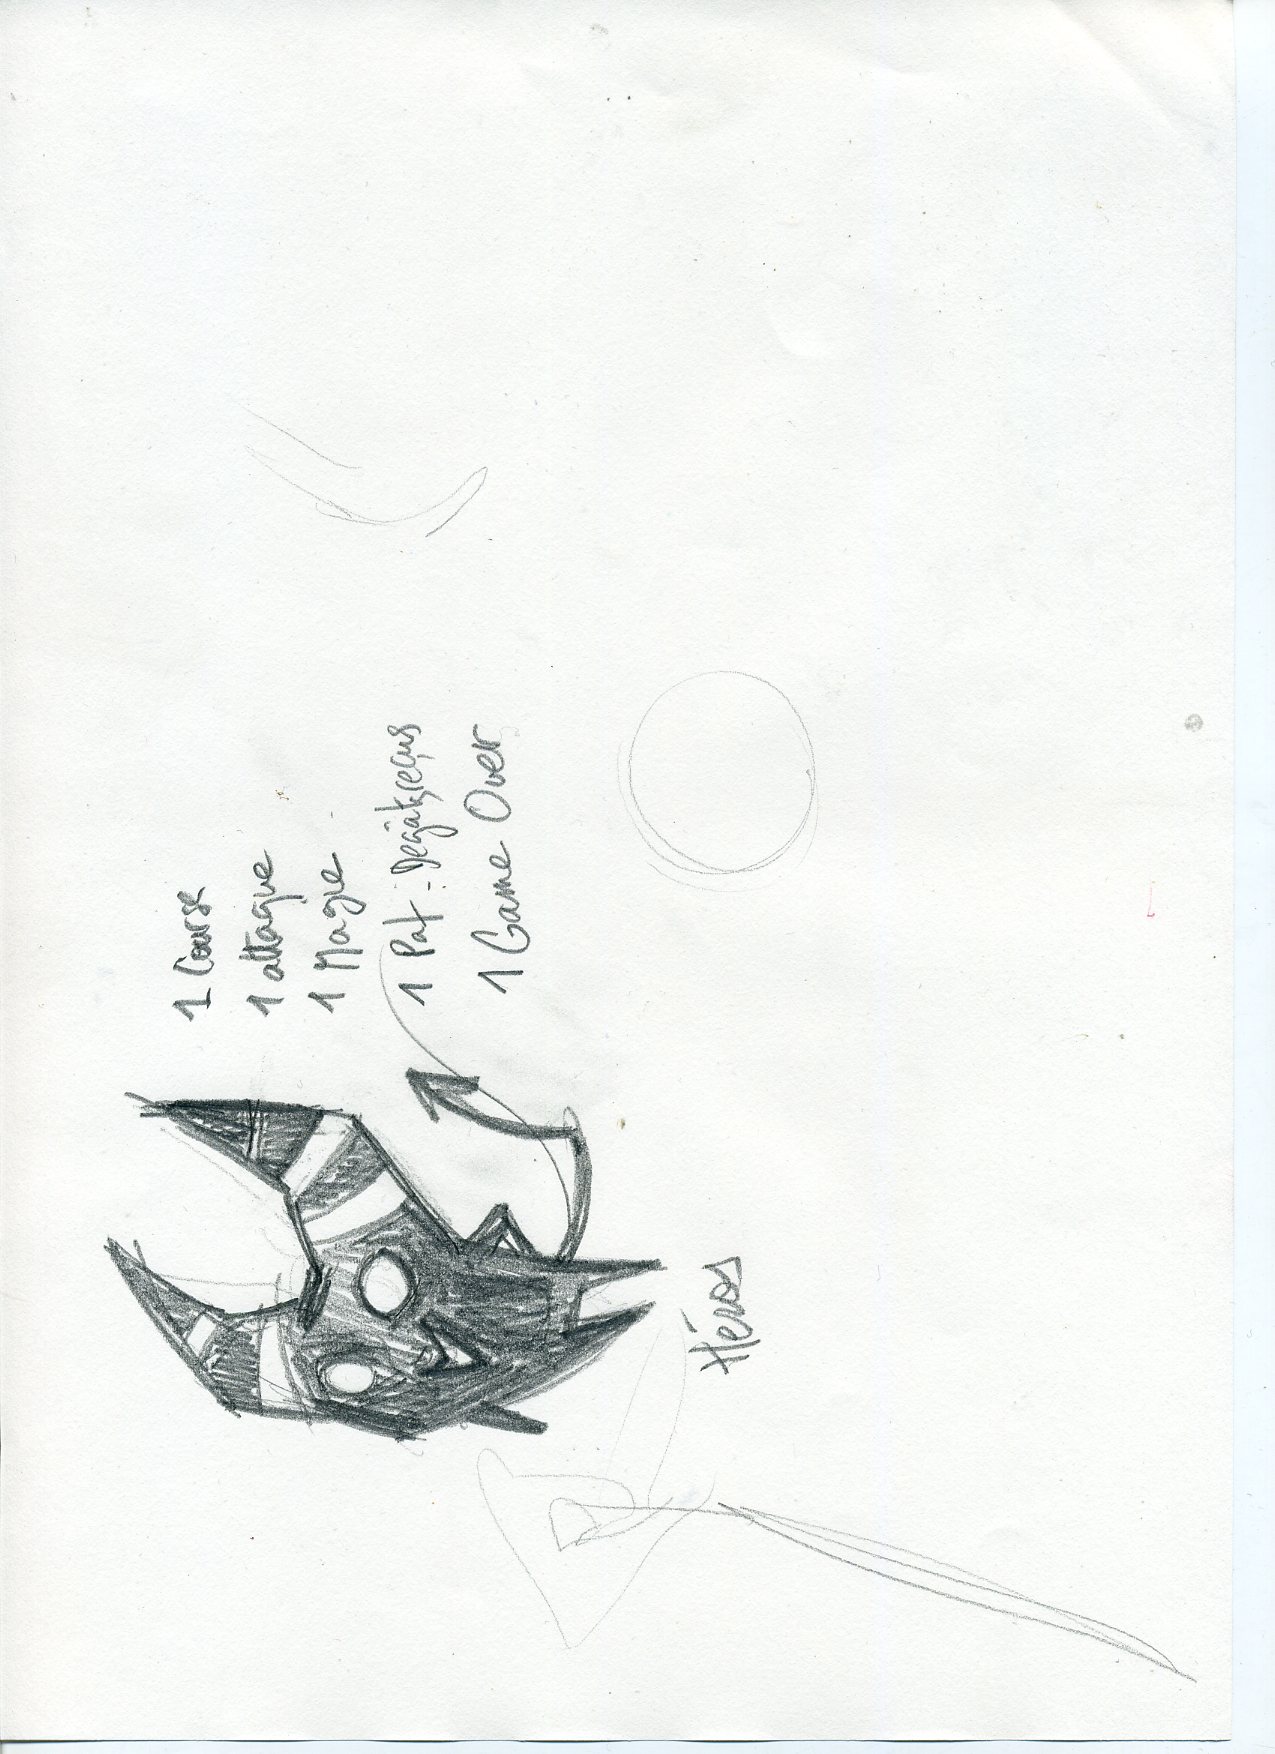 1 Course
1 attaque
1 Magie
1 Pat. Dégâts reçus
1 Game Over
Héros